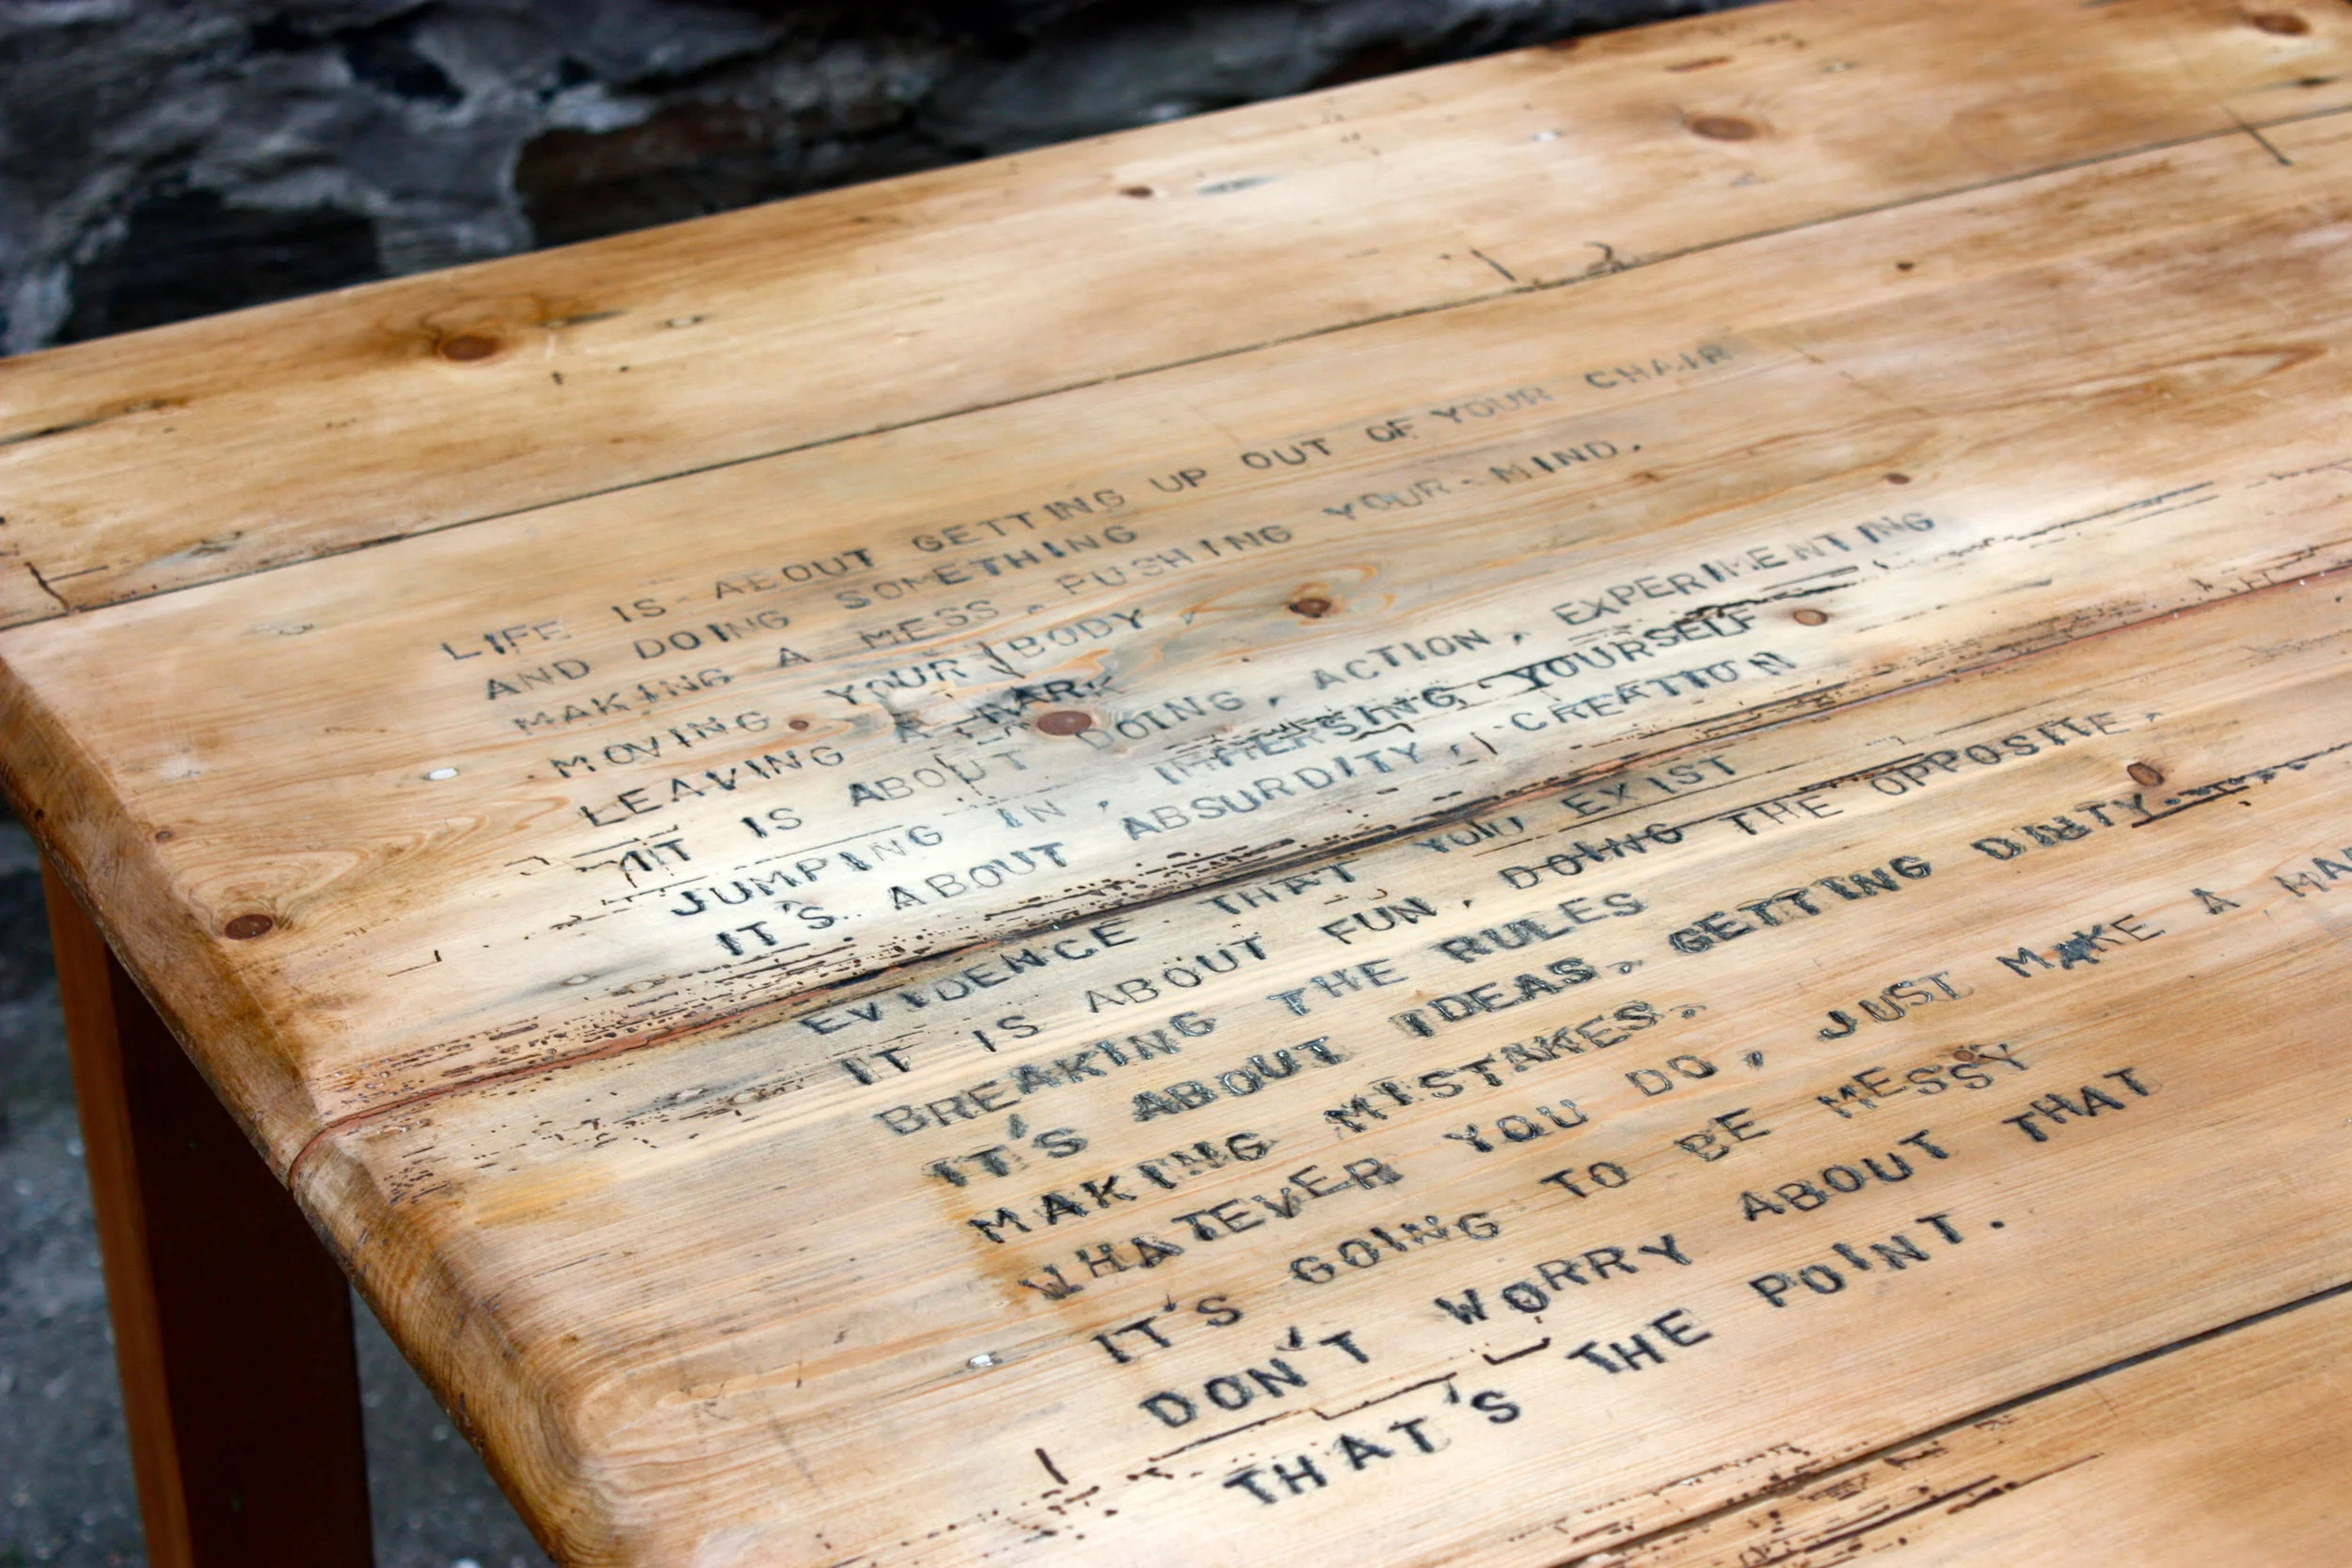 LIFE IS ABOUT GETTING UP OUT OF YOUR CHAIR
AND DOING SOMETHING
MAKING A MESS, PUSHING YOUR MIND,
MOVING YOUR BODY,
LEAVING A MARK
IT IS ABOUT DOING, ACTION, EXPERIMENTING
JUMPING IN, IMMERSING YOURSELF
IT'S ABOUT ABSURDITY, CREATION
EVIDENCE THAT YOU EXIST
IT IS ABOUT FUN, DOING THE OPPOSITE,
BREAKING THE RULES
IT'S ABOUT IDEAS, GETTING DIRTY.
MAKING MISTAKES.
WHATEVER YOU DO, JUST MAKE A
IT'S GOING TO BE MESSY
DON'T WORRY ABOUT THAT
THAT'S THE POINT.